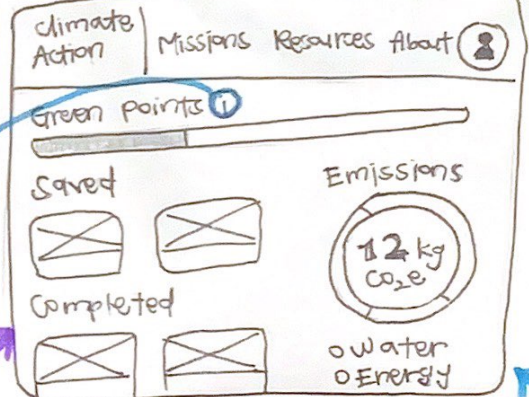 Climate
Action
Missions Resources About
Green points i
Saved
Emissions
12 kg
CO₂e
Completed
Water
Energy